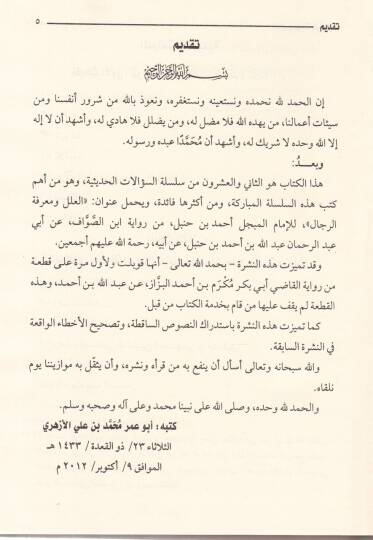 تقديم ٥
تقديم
بسم الله الرحمن الرحيم
إن الحمد لله نحمده ونستعينه ونستغفره، ونعوذ بالله من شرور أنفسنا ومن
سيئات أعمالنا، من يهده الله فلا مضل له، ومن يضلل فلا هادي له، وأشهد أن لا إله
إلا الله وحده لا شريك له، وأشهد أن مُحَمَّدًا عبده ورسوله.
وبعــدُ:
هذا الكتاب هو الثاني والعشرون من سلسلة السؤالات الحديثية، وهو من أهم
كتب هذه السلسلة المباركة، ومن أكثرها فائدة، ويحمل عنوان: «العلل ومعرفة
الرجال»، للإمام المبجل أحمد بن حنبل، من رواية ابن الصَّوَّاف، عن أبي
عبد الرحمان عبد الله بن أحمد بن حنبل، عن أبيه، رحمة الله عليهم أجمعين.
وقد تميزت هذه النشرة - بحمد الله تعالى - أنها قوبلت ولأول مرة على قطعة
من رواية القاضي أبي بكر مُكْرَم بن أحمد البزَّاز، عن عبد الله بن أحمد، وهذه
القطعة لم يقف عليها من قام بخدمة الكتاب من قبل.
كما تميزت هذه النشرة باستدراك النصوص الساقطة، وتصحيح الأخطاء الواقعة
في النشرة السابقة.
والله سبحانه وتعالى أسأل أن ينفع به من قرأه ونشره، وأن يثقِّل به موازيننا يوم
نلقاه.
والحمد لله وحده، وصلى الله على نبينا محمد وعلى آله وصحبه وسلم.
كتبه: أبو عمر مُحَمَّد بن علي الأزهري
الثلاثاء ٢٣/ ذو القعدة/ ١٤٣٣ هـ
الموافق ٩/ أكتوبر/ ٢٠١٢ م